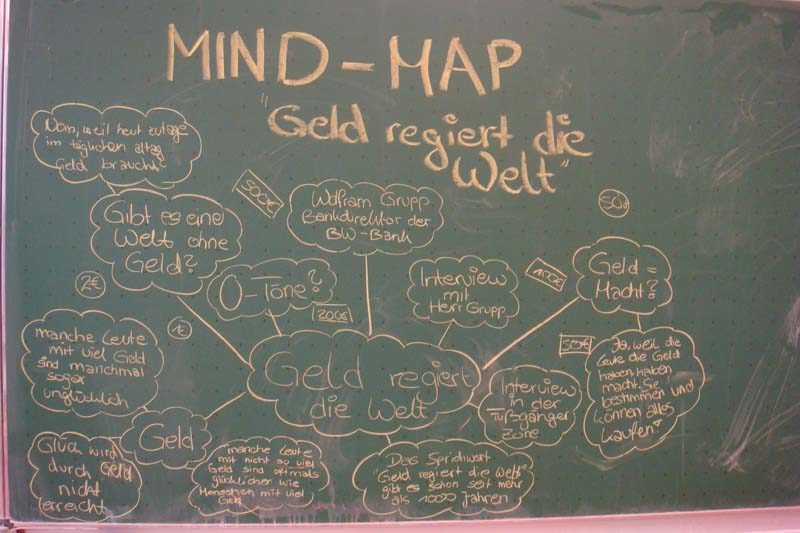 MIND-MAP
"Geld regiert die
Welt"
Nein, weil heut zutage
im täglichen alltag
Geld braucht
Gibt es eine
Welt ohne
Geld?
500€
Wolfram Grupp
Bankdirektor der
BW-Bank
50c
O-Töne?
200€
Interview
mit
Herr Grupp
100€
Geld =
Macht?
2€
1€
50€
Ja, weil die
Leute die Geld
haben haben
macht. Sie
bestimmen und
können alles
kaufen
manche Leute
mit viel Geld
sind manchmal
sogar
unglücklich
Geld regiert
die Welt
Interview
in der
Fußgänger
Zone
Geld
Glück wird
durch Geld
nicht
erreicht
manche Leute
mit nicht so viel
Geld sind oftmals
glücklicher wie
Menschen mit viel
Geld
Das Sprichwort
"Geld regiert die Welt"
gibt es schon seit mehr
als 10000 Jahren